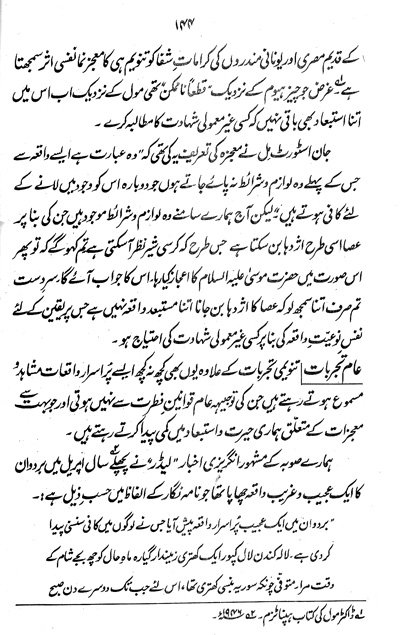 ۱۴۴
کے قدیم مصری اور یونانی مندروں کی کرامات شفا کو تنویم ہی کا معجز نما نفسی اثر سمجھتا
ہے لہ غرض جو چیز ہیوم کے نزدیک "قطعاً ناممکن" تھی مول کے نزدیک اب اس میں
اتنا استبعاد بھی باقی نہیں کہ کسی غیر معمولی شہادت کا مطالبہ کرے۔
جان اسٹورٹ مل نے معجزہ کی تعریف یہ کی تھی کہ "وہ عبارت ہے ایسے واقعہ سے
جس کے پہلے وہ لوازم و شرائط نہ پائے جاتے ہوں جو دوبارہ اس کو وجود میں لانے کے
لئے کافی ہوتے ہیں" لیکن آج ہمارے سامنے وہ لوازم و شرائط موجود ہیں جن کی بنا پر
عصا اسی طرح اژدہا بن سکتا ہے جس طرح کہ کرسی شیر نظر آسکتی ہے تم کہو گے کہ تو پھر
اس صورت میں حضرت موسیٰ علیہ السلام کا اعجاز کیا رہا، اس کا جواب آئے گا، سردست
تم صرف اتنا سمجھ لو کہ عصا کا اژدہا بن جانا اتنا مستبعد واقعہ نہیں ہے جس پر یقین کے لئے
نفس نوعیتِ واقعہ کی بنا پر کسی غیر معمولی شہادت کی احتیاج ہو۔
عام تجربات تنویمی تجربات کے علاوہ یوں بھی کچھ نہ کچھ ایسے پُر اسرار واقعات مشاہد و
مسموع ہوتے رہتے ہیں جن کی توجیہ عام قوانین فطرت سے نہیں ہوتی اور جو بہت سے
معجزات کے متعلق ہماری حیرت و استبعاد میں کمی پیدا کرتے رہتے ہیں۔
ہمارے صوبہ کے مشہور انگریزی اخبار "لیڈر" نے پچھلے سال اپریل میں بردوان
کا ایک عجیب و غریب واقعہ چھاپا تھا جو نامہ نگار کے الفاظ میں حسب ذیل ہے:۔
"بردوان میں ایک عجیب پُر اسرار واقعہ پیش آیا جس نے لوگوں میں کافی سنسنی پیدا
کر دی ہے۔ لالہ کندن لال کپور ایک کھتری زمیندار گیارہ ماہ حال کو چھ بجے شام کے
وقت مرا۔ متوفی چونکہ سوریہ بنسی کھتری تھا، اس لئے جب تک دوسرے دن صبح
لہ ڈاکٹر مول کی کتاب ہپناٹزم۔ ۲ه ۱۹۴۶ء۔